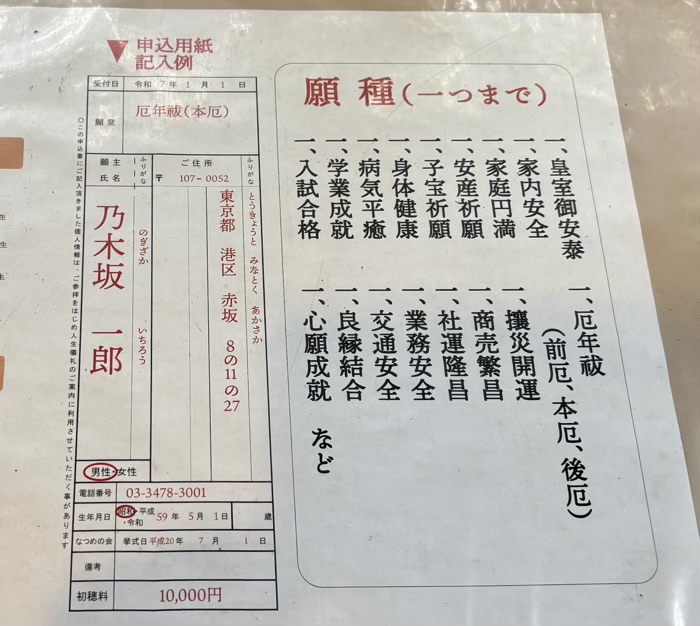 ▼申込用紙
記入例
受付日 令和 7 年 1 月 1 日
願意 厄年祓(本厄)
願主
氏名
ふりがな
ご住所
〒 107-0052
ふりがな
とうきょうと みなとく あかさか
東京都 港区 赤坂 8の11の27
のぎざか いちろう
乃木坂 一郎
男性・女性
電話番号 03-3478-3001
生年月日 昭和・平成・令和 59 年 5 月 1 日 歳
なつめの会 挙式日 平成20 年 7 月 1 日
備考
初穂料 10,000円
〇この申込書にご記入頂きました個人情報は、ご参拝をはじめ人生儀礼のご案内に利用させていただく事があります
願種(一つまで)
一、皇室御安泰
一、家内安全
一、家庭円満
一、安産祈願
一、子宝祈願
一、身体健康
一、病気平癒
一、学業成就
一、入試合格
一、厄年祓
(前厄、本厄、後厄)
一、攘災開運
一、商売繁昌
一、社運隆昌
一、業務安全
一、交通安全
一、良縁結合
一、心願成就 など
生
生
生